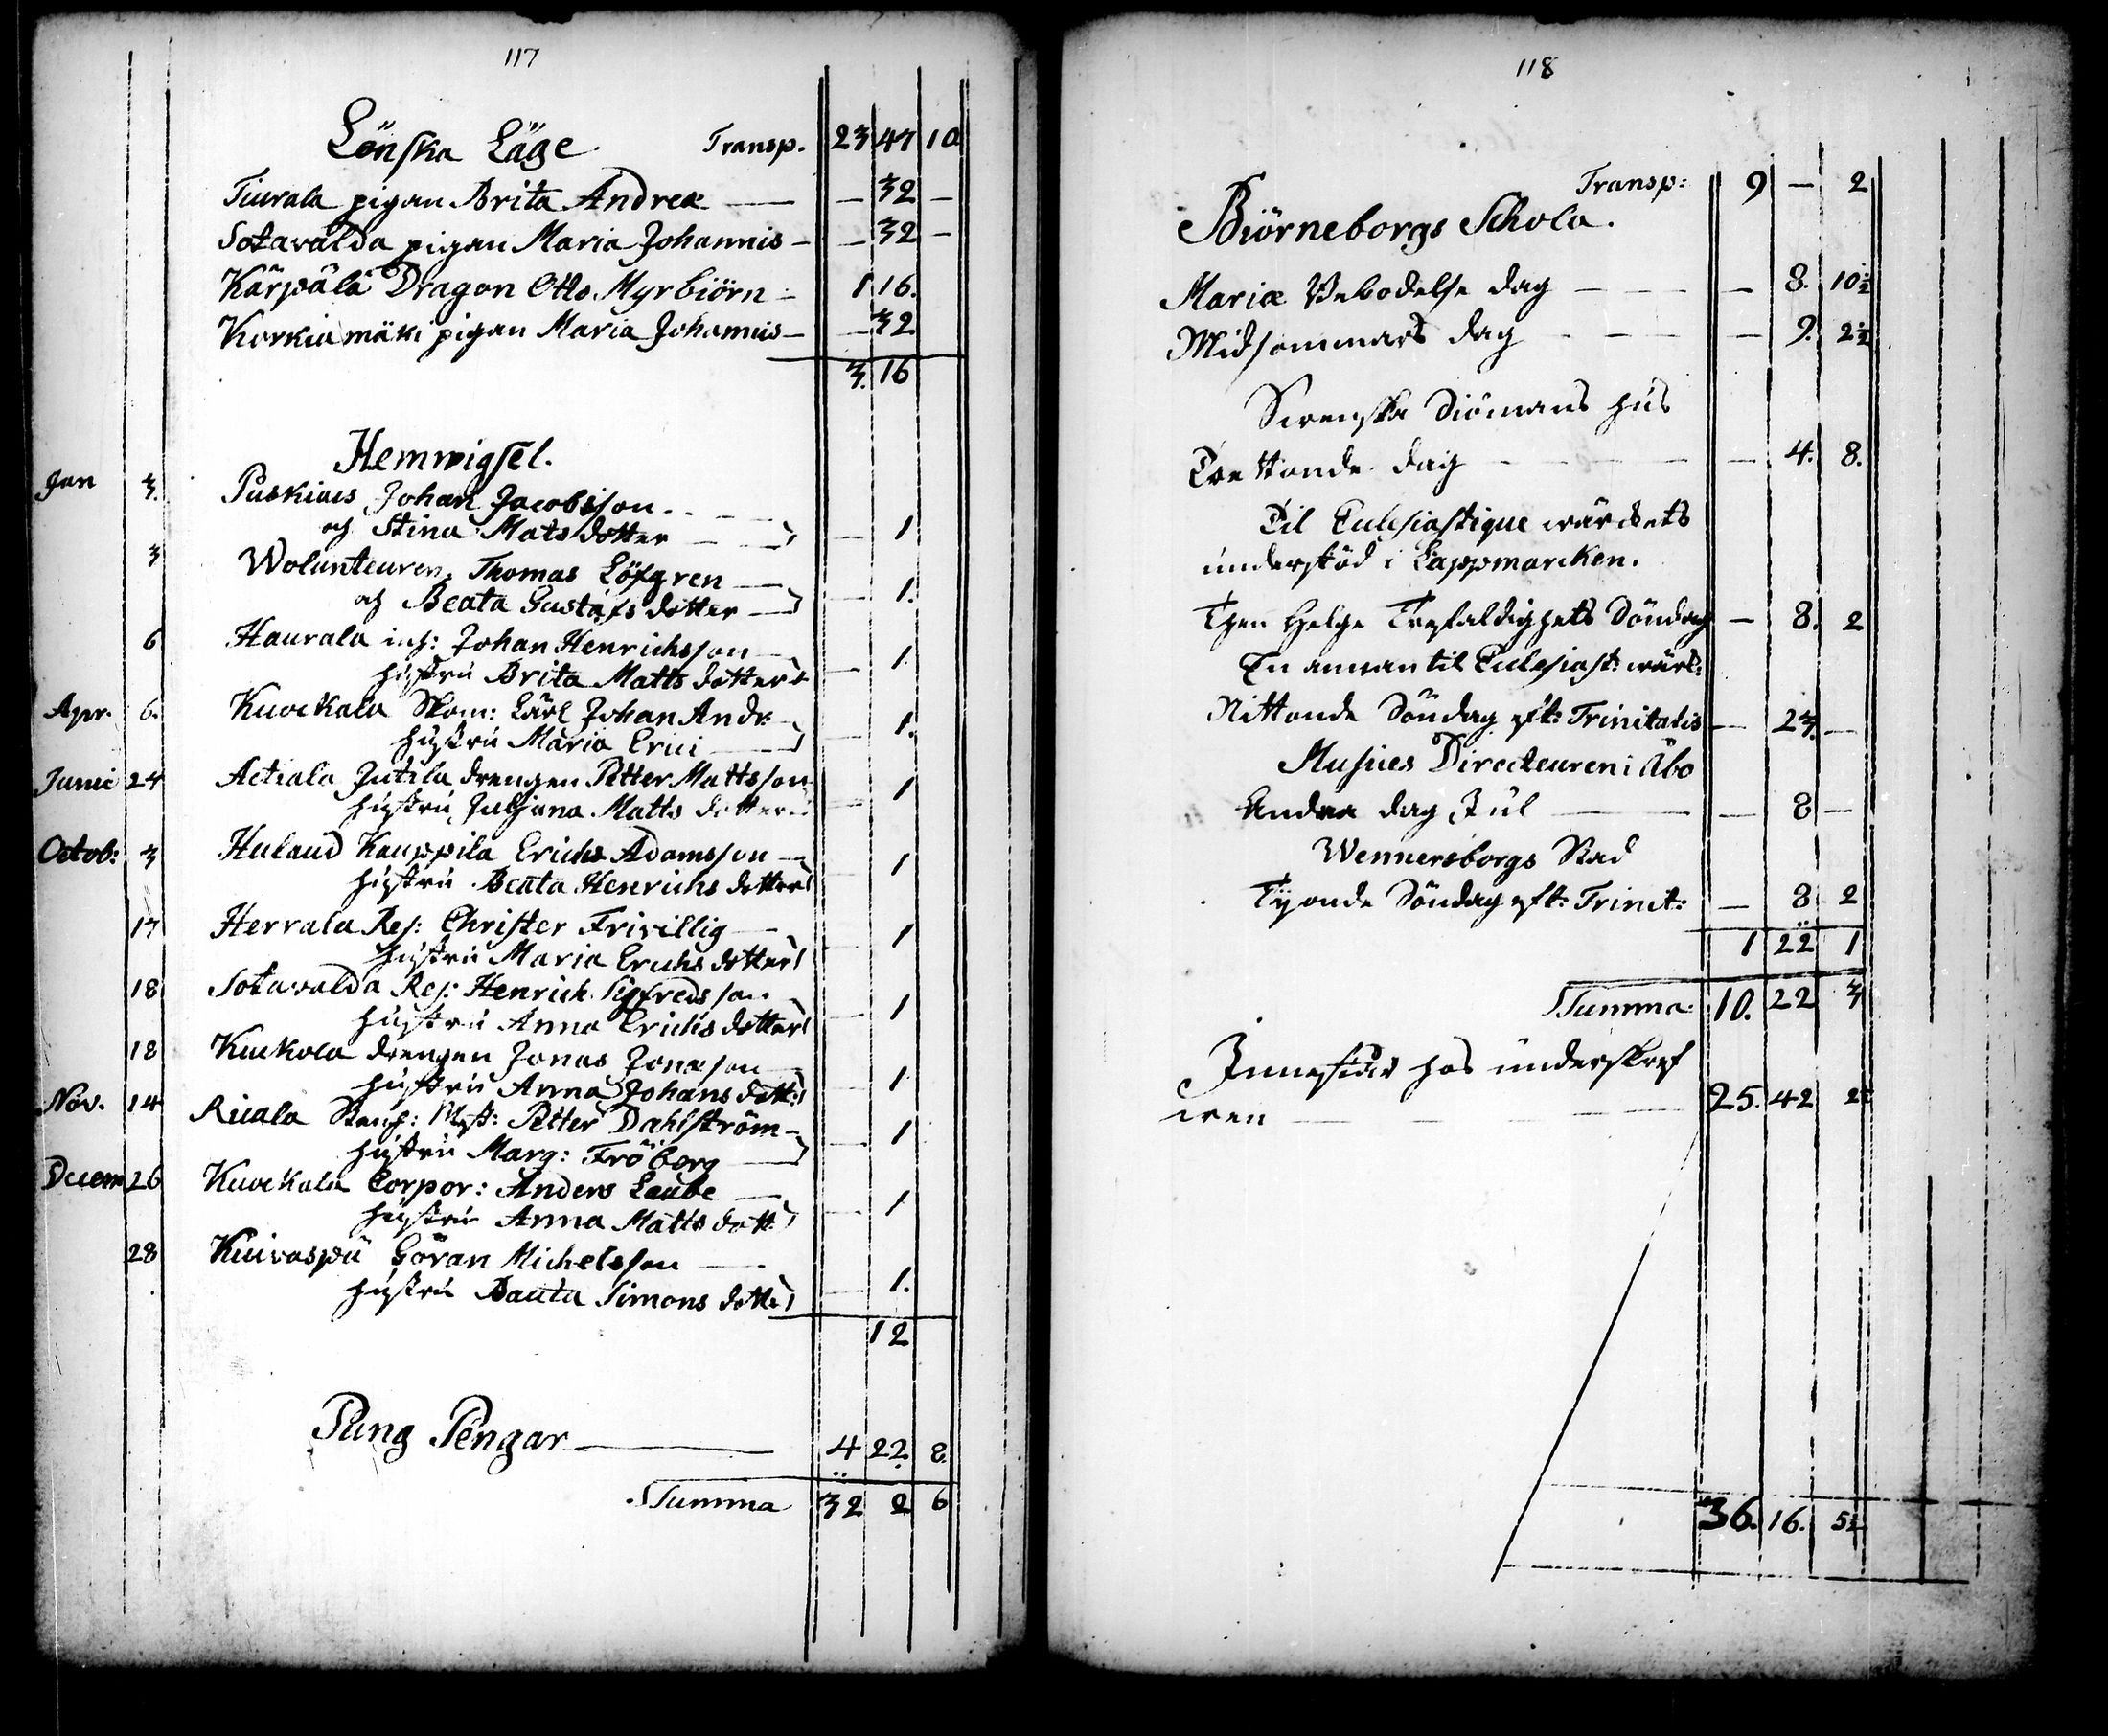 117
Lönska Läge Transp. 23 47 10
Tiurala pigan Brita Andreæ — — 32 —
Sotavalda pigan Maria Johannis — — 32 —
Kärpälä Dragon Otto Myrbiörn 1 16.
Korkiamäki pigan Maria Johannis — — 32
3. 16
Hemwigsel.
Jan 3. Puskius Johan Jacobsson
och Stina Matsdotter — 1
3 Wolunteuren Thomas Löfgren
och Beata Gustafsdotter — 1.
6 Haurala inh: Johan Henrichsson
hustru Brita Mattsdotter — 1
Apr. 6. Kuockala Skom: Lärl Johan Andr
hustru Maria Erici — 1.
Junii 24 Actiala Jutila drengen Petter Mattsson
hustru Juljana Matts dotter — 1
Octob: 3 Hulaud Kauppila Erichs Adamsson
hustru Beata Henrichs dotter — 1
17 Herrala Res: Christer Frivillig
hustru Maria Erichs dotter 1
18 Sotavalda Res: Henrich Sigfredsson
hustru Anna Erichs dotter — 1
18 Kuckola drengen Jonas Jonæson
hustru Anna Johans dott: — 1
Nov. 14 Ricala Mest: Petter Dahlström
hustru Marg: Fröberg — 1
Decem 26 Kuockala Corpor: Anders Laube
hustru Anna Matts dott — 1
28 Kuivaspä Göran Michelsson
hustru Bauta Simons dotter — 1.
12
Pung Pengar — 4 22. 8.
Summa 32 2 6
118
Transp: 9 — 2
Biörneborgs Schola.
Mariæ Bebodelse dag — — 8. 10½
Midsommars dag — — 9. 2½
Swenska Siömans hus
Trettonde dag — — 4. 8.
Til Eclesiastique wärckets
understöd i Lappmarcken.
Then Helge Trefaldighets Söndag — 8. 2
En annan til Eclesiast: wärk:
Nittonde Söndag eft: Trinitatis — 23. —
Musices Directeuren i Åbo
Andra dag Jul — — 8 —
Wennersborgs Stad
Tyonde Söndag eft: Trinit: — 8 2
1 22 1
Summa 10. 22 3
Innestår hos underskref
wen — 25. 42 2½
36. 16. 5½